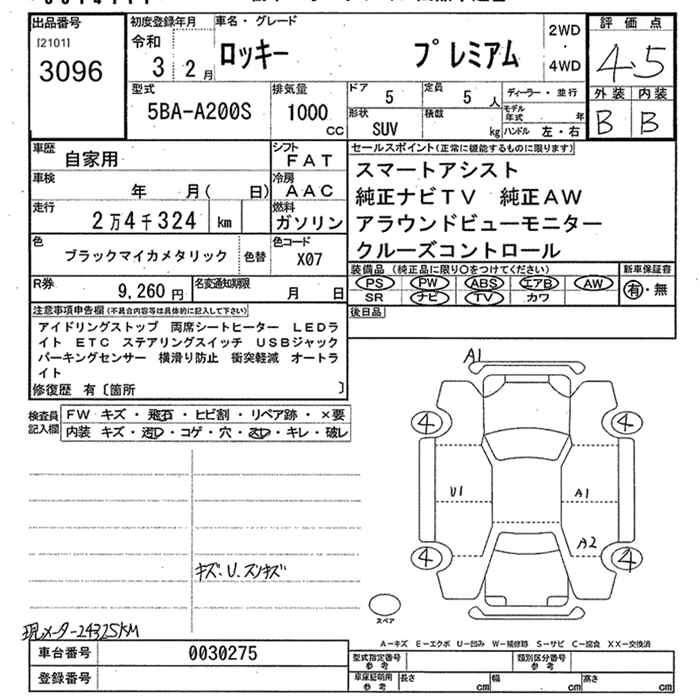 出品番号
[2101]
3096
初度登録年月
令和
3 2月
車名・グレード
ロッキー プレミアム
2WD
・
4WD
評価点
4.5
外装 内装
B B
型式
5BA-A200S
排気量
1000
CC
ドア
5
定員
5 人
形状
SUV
積載
kg
ディーラー・並行
モデル年式 年
ハンドル 左・右
車歴
自家用
シフト
FAT
車検
年 月( 日)
冷房
AAC
走行
2万4千324 km
燃料
ガソリン
色
ブラックマイカメタリック
色替
色コード
X07
R券
9,260 円
名変通知期限
月 日
セールスポイント(正常に機能するものに限ります)
スマートアシスト
純正ナビTV 純正AW
アラウンドビューモニター
クルーズコントロール
装備品(純正品に限り○をつけてください)
PS PW ABS エアB AW
SR ナビ TV カワ
新車保証書
有・無
後日品
注意事項申告欄(不具合内容等は具体的に記入して下さい)
アイドリングストップ 両席シートヒーター LEDラ
イト ETC ステアリングスイッチ USBジャック
パーキングセンサー 横滑り防止 衝突軽減 オートラ
イト
修復歴 有〔箇所 〕
検査員
記入欄
FW キズ・飛石・ヒビ割・リペア跡・×要
内装 キズ・汚れ・コゲ・穴・スレ・キレ・破レ
キズ.U.スリキズ
現メーター24325KM
A1
4 4
U1 A1
A2
4 4
スペア
A-キズ E-エクボ U-凹み W-補修跡 S-サビ C-腐食 XX-交換済
車台番号
0030275
登録番号
型式指定番号
参考
類別区分番号
参考
車庫証明用
参考
長さ cm 幅 cm 高さ cm